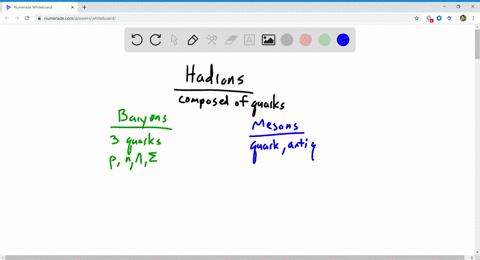 Numerade Whiteboard
numerade.com/answers/whiteboard/
Hadrons
composed of quarks
Baryons
3 quarks
p, n, Λ, Σ
Mesons
quark, antiq